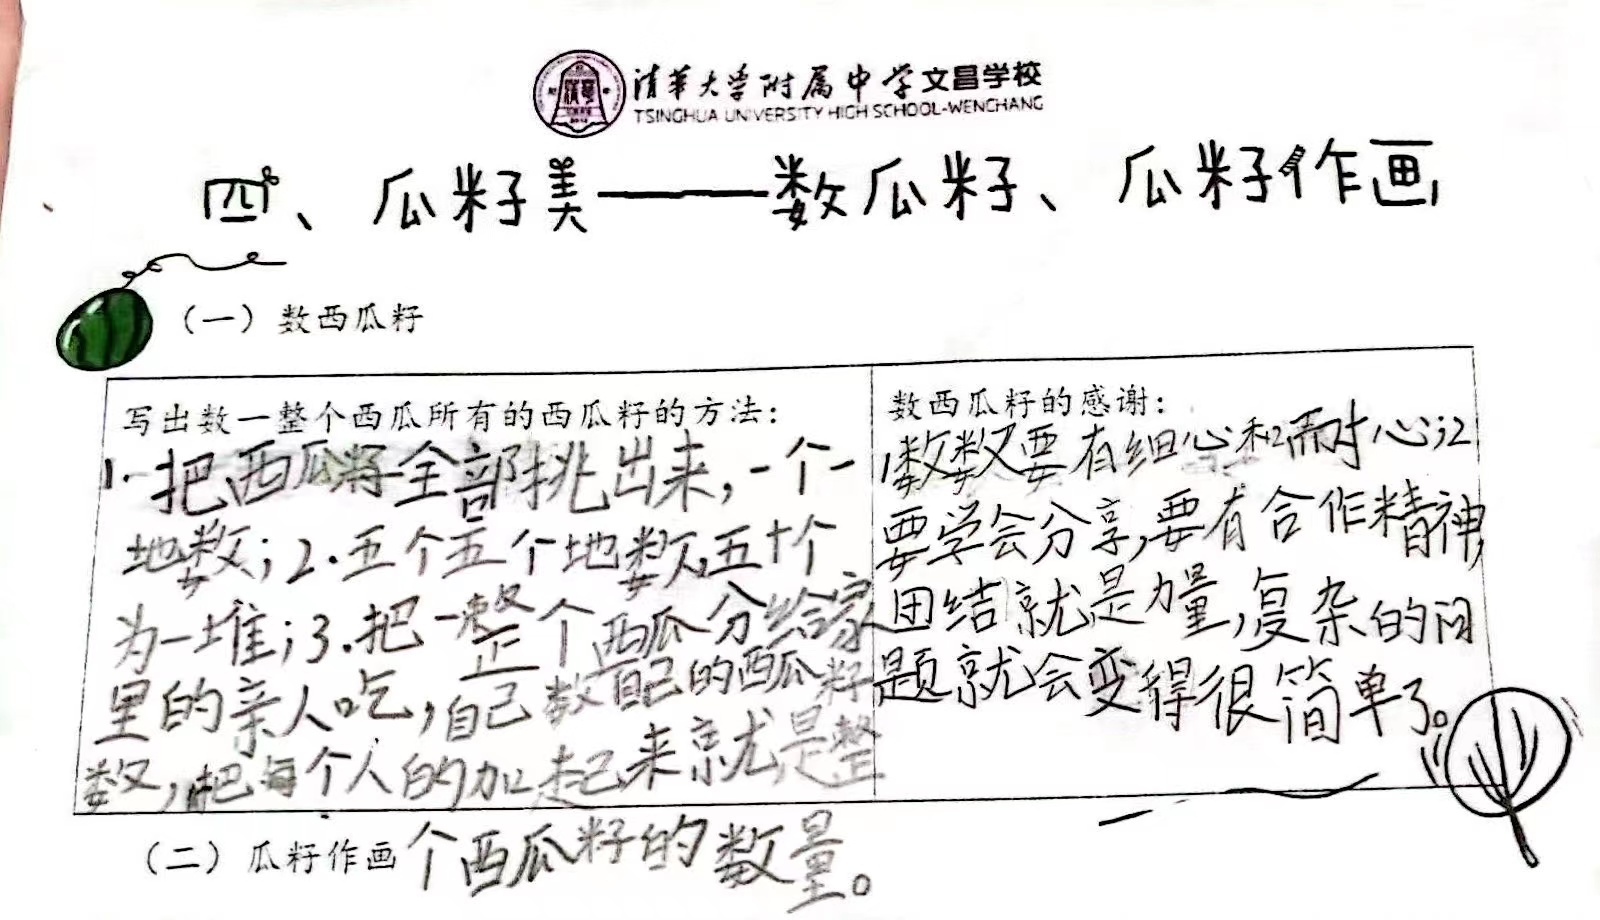 清华大学附属中学文昌学校
TSINGHUA UNIVERSITY HIGH SCHOOL-WENCHANG
四、瓜籽美——数瓜籽、瓜籽作画
（一）数西瓜籽
写出数一整个西瓜所有的西瓜籽的方法：
1.把西瓜籽全部挑出来，一个一
地数；2.五个五个地数，五十个
为一堆；3.把一整个西瓜分给家
里的亲人吃，自己数自己的西瓜籽
数，把每个人的加起来就是整
个西瓜籽的数量。
数西瓜籽的感谢：
1数数要有细心和耐心；2
要学会分享，要有合作精神，
团结就是力量，复杂的问
题就会变得很简单了。
（二）瓜籽作画